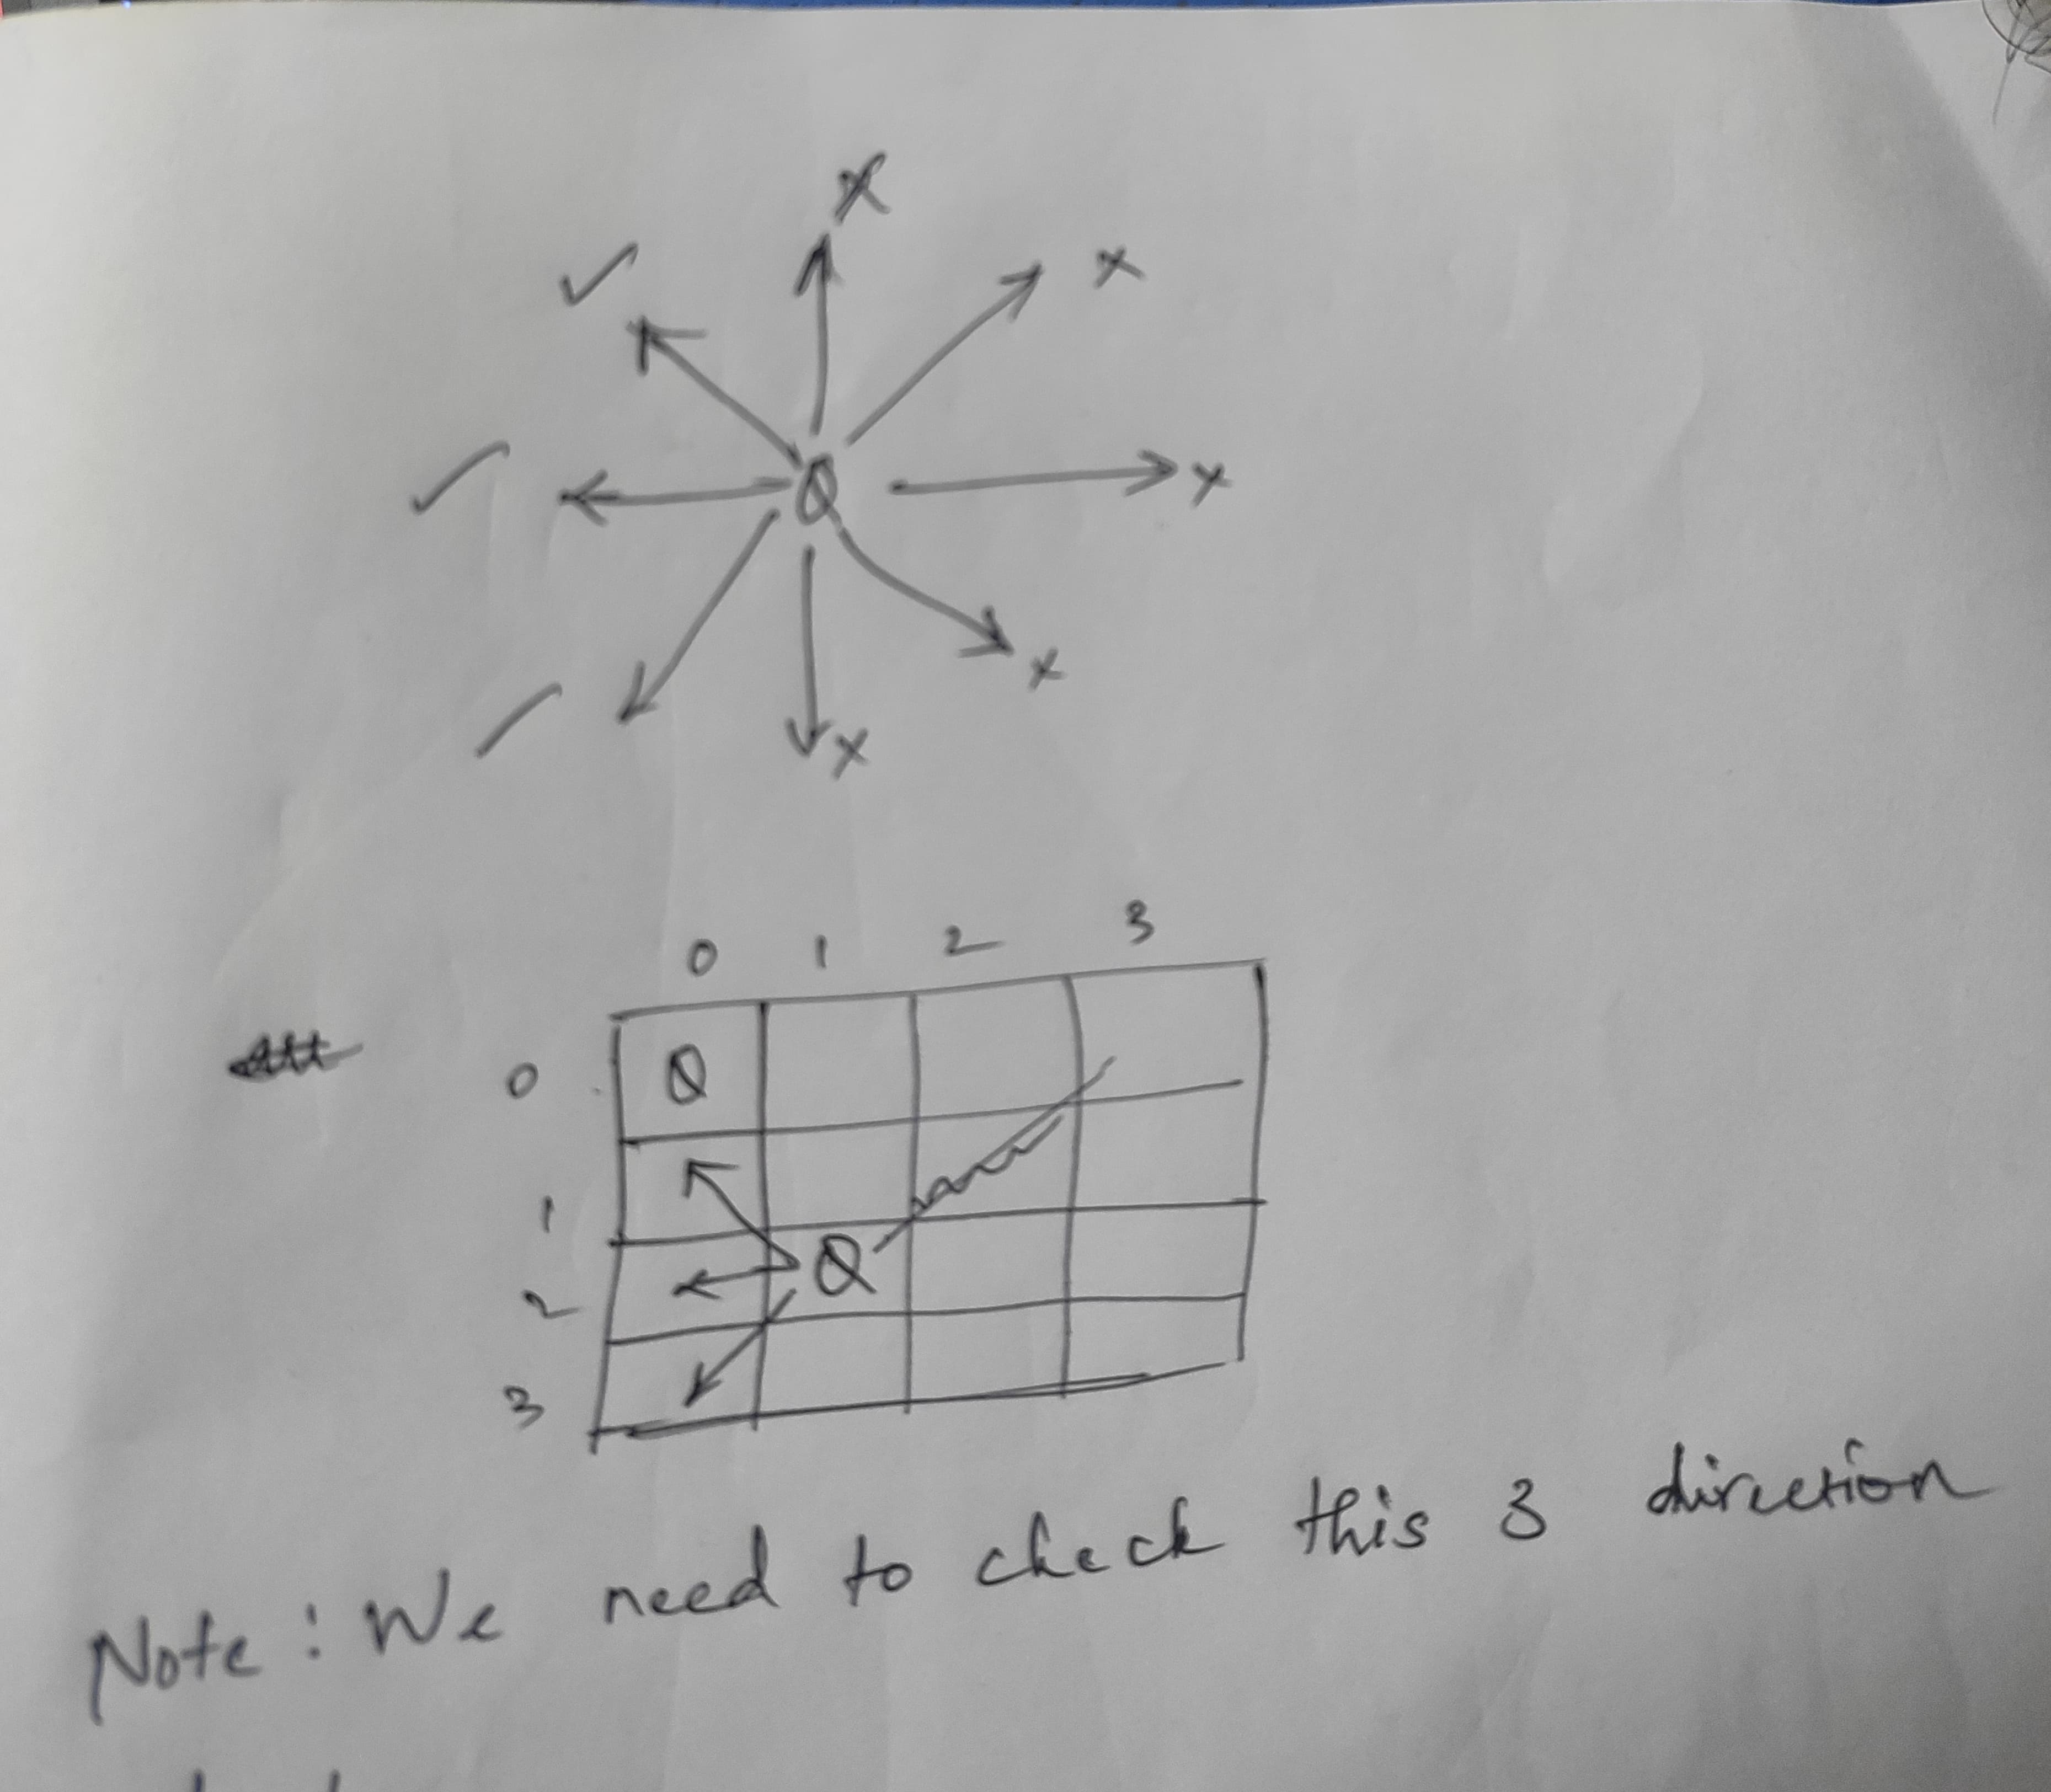 x
✓ x
Q
✓ x
x
x
0 1 2 3
0 Q
1
2 Q
3
Note : We need to check this 3 direction